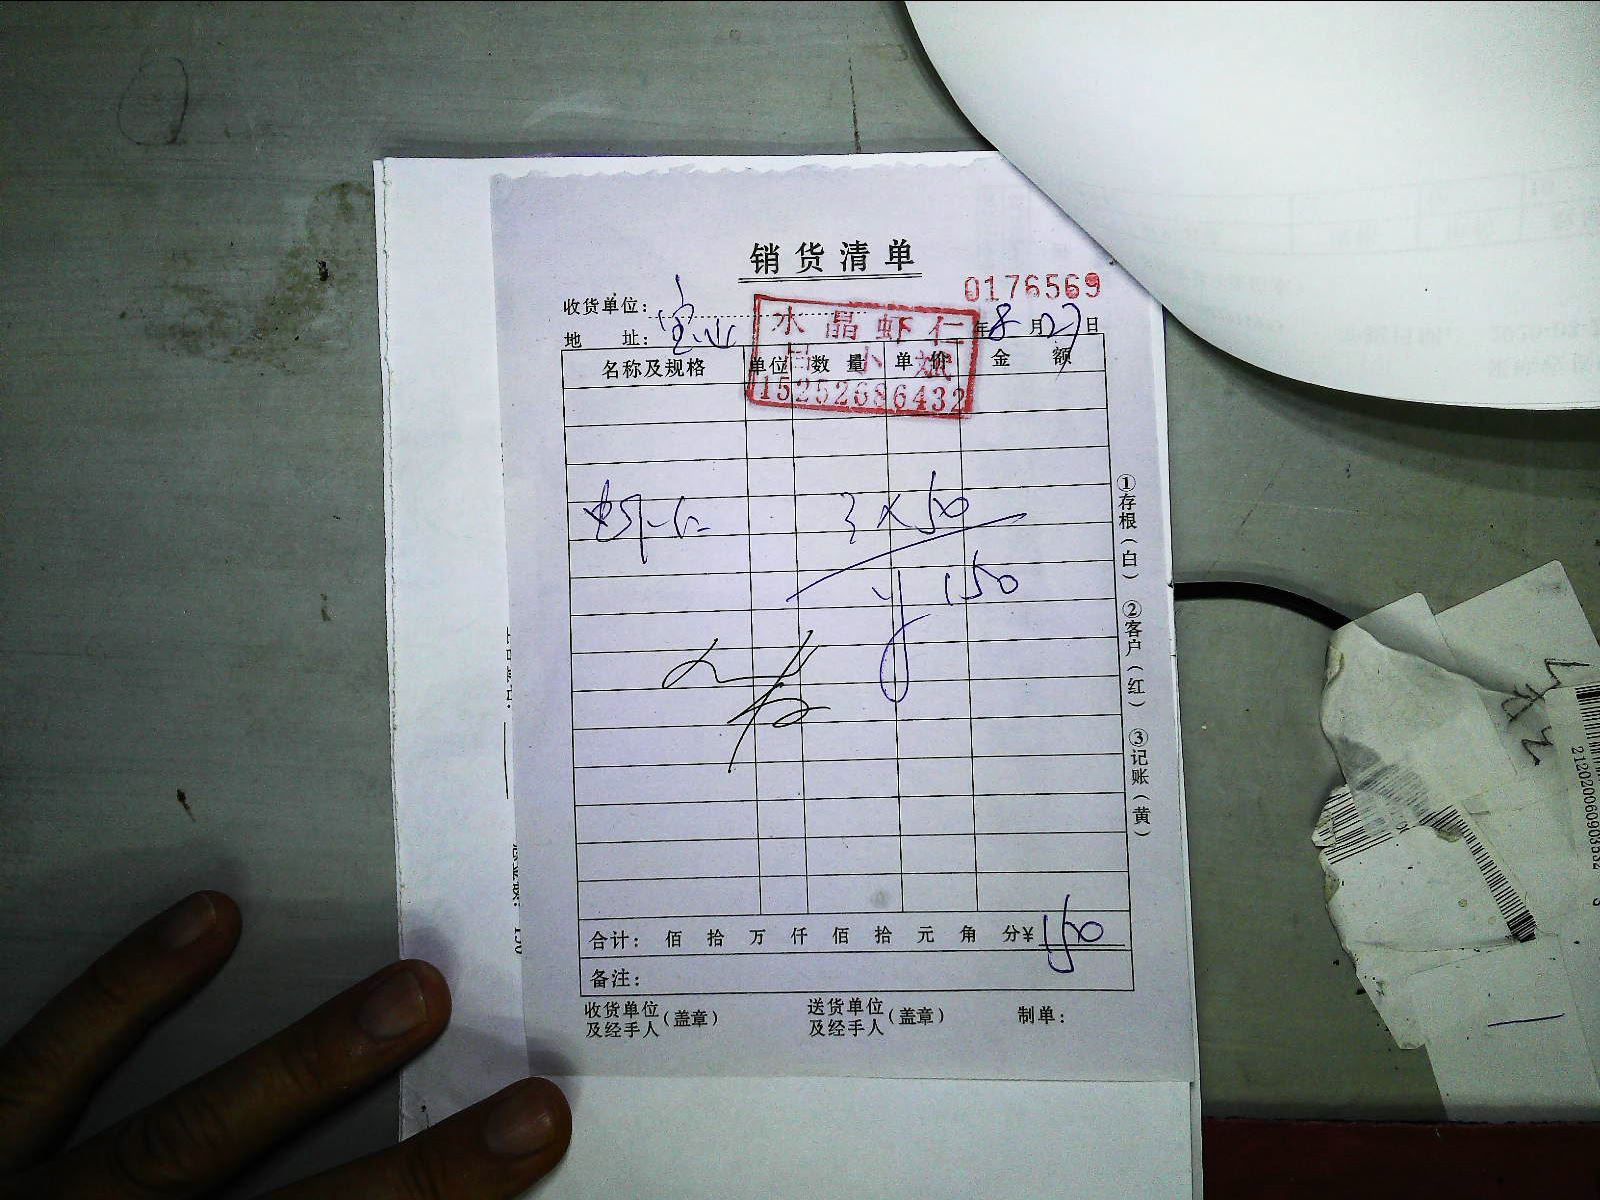 销货清单
0176569
收货单位：
地 址：宝山
年8月27日
水晶虾仁
小斌
15252686432
名称及规格 单位 数量 单价 金额
虾仁 3×50
¥150
合计： 佰 拾 万 仟 佰 拾 元 角 分¥150
备注：
收货单位及经手人（盖章） 送货单位及经手人（盖章） 制单：
①存根（白） ②客户（红） ③记账（黄）